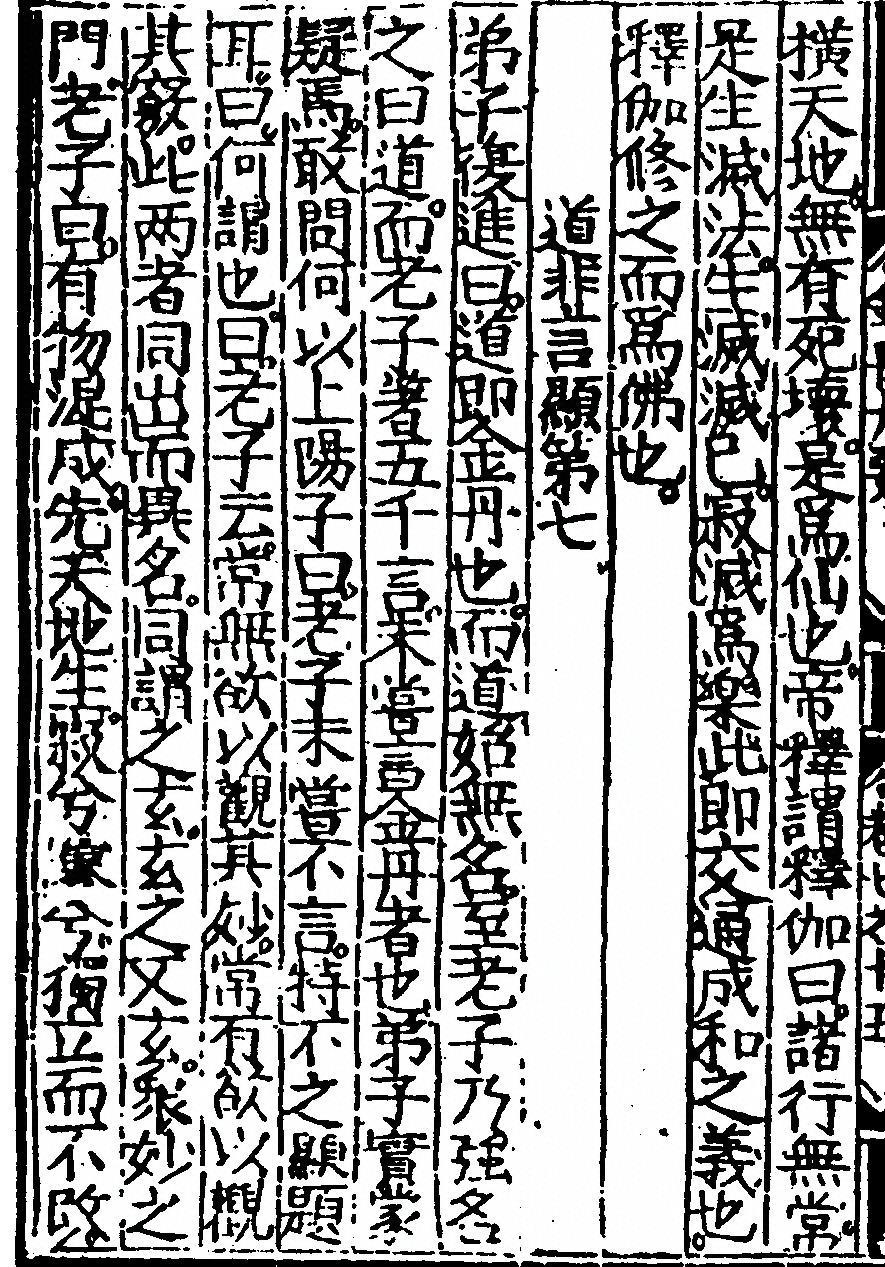 横天地無有死壞是爲仙也帝釋謂釋伽曰諸行無常
是生滅法生滅滅已寂滅爲樂此即交通成和之義也
釋伽修之而爲佛也
道非言顯第七
弟子復進曰道即金丹也而道始無名豈老子乃強名
之曰道而老子著五千言未嘗言金丹者也弟子實蒙
疑焉敢問何以上陽子曰老子未嘗不言特不之顯題
耳曰何謂也曰老子云常無欲以觀其妙常有欲以觀
其竅此两者同出而異名同謂之玄玄之又玄衆妙之
門老子曰有物混成先天地生寂兮寞兮獨立而不改